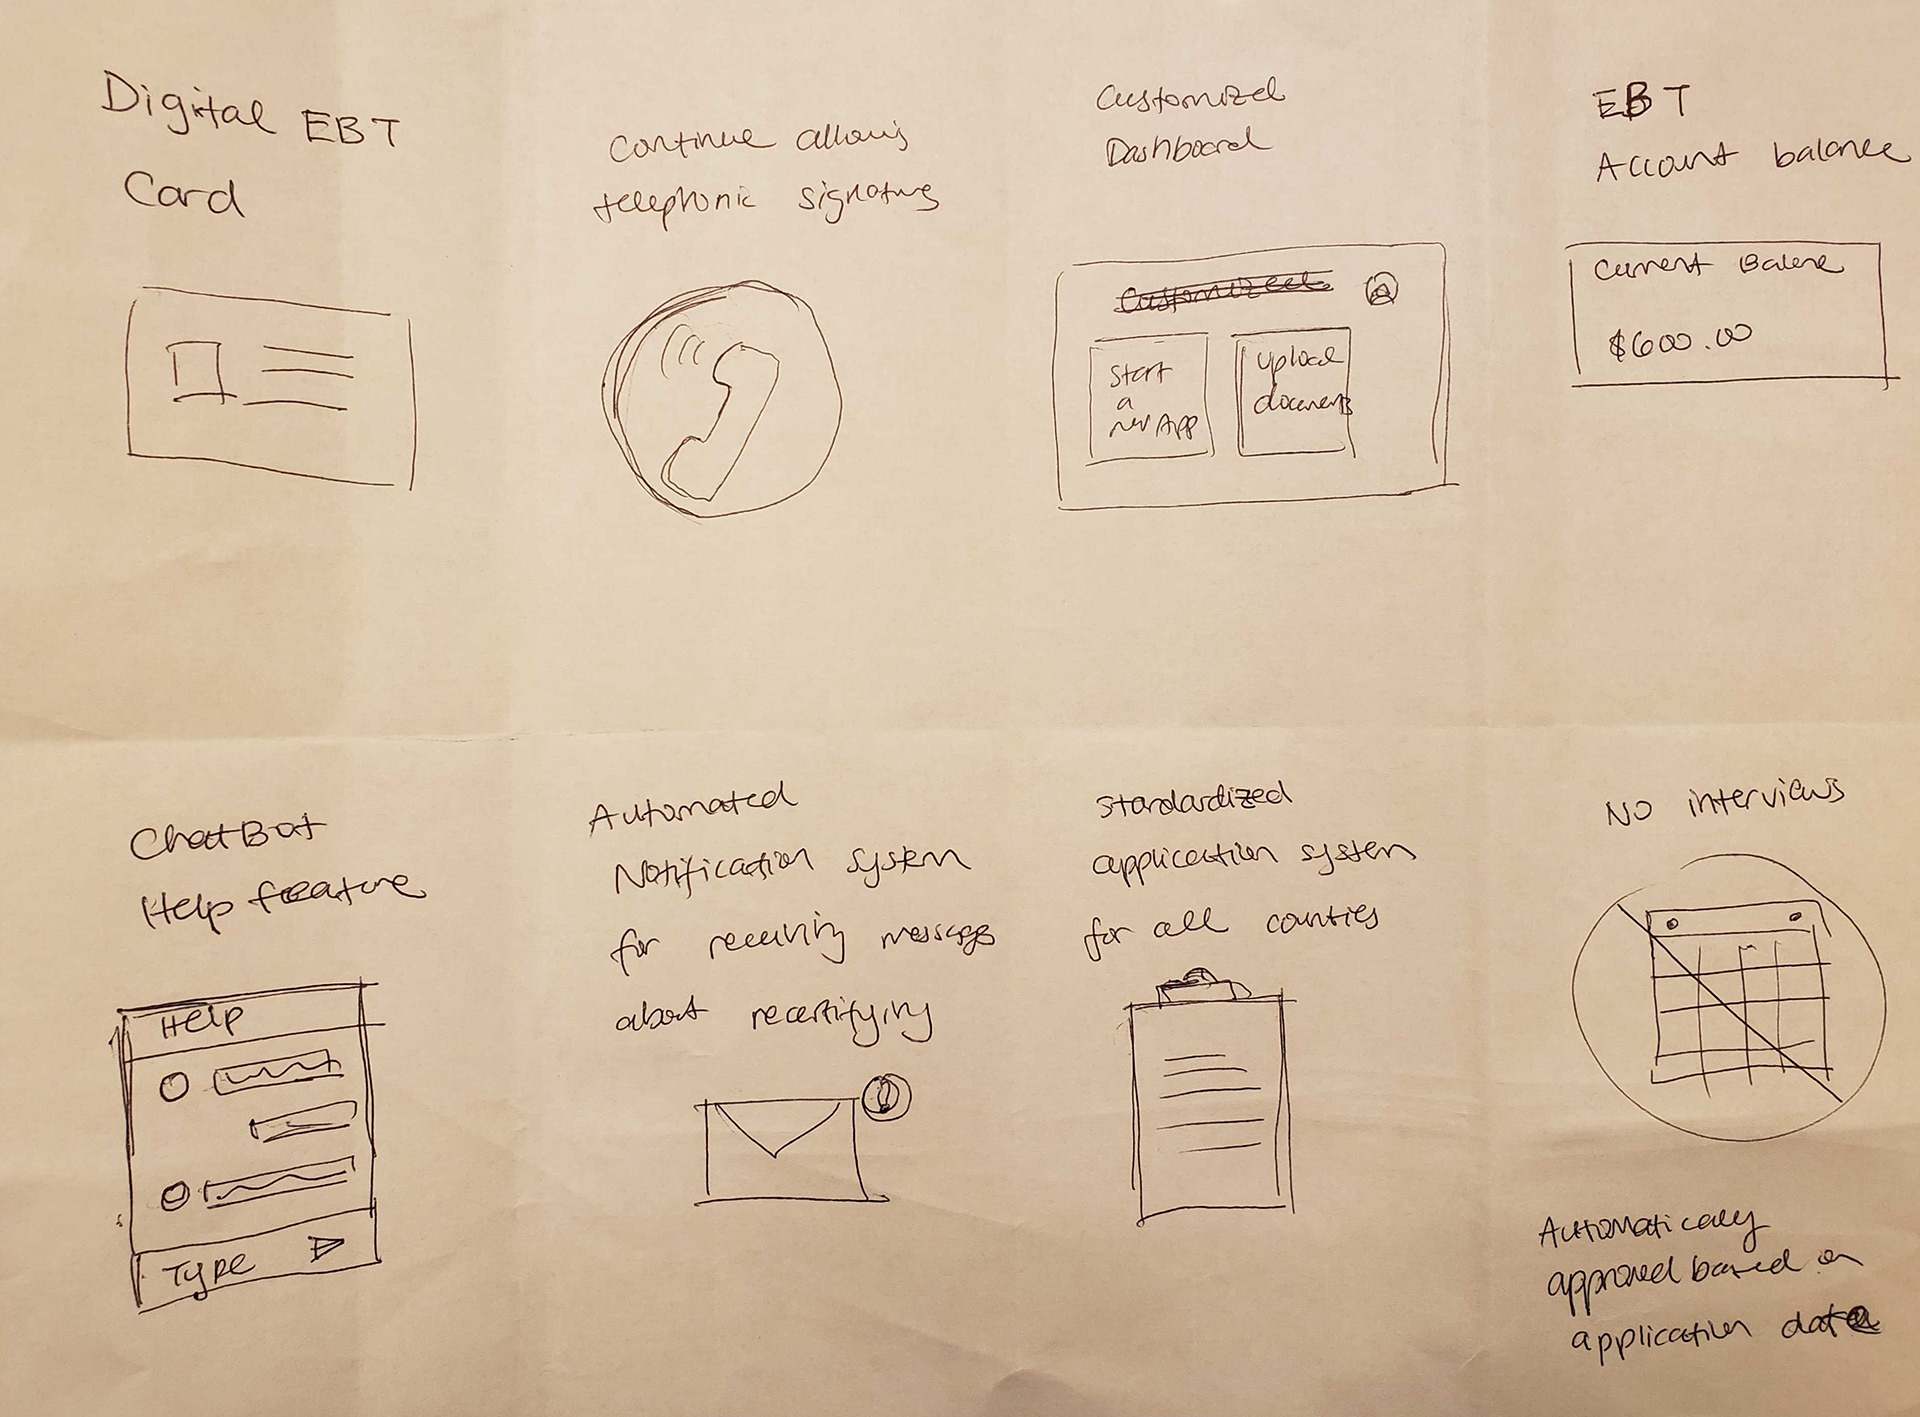 Digital EBT
Card
Continue allowing
telephonic signature
Customized
Dashboard
Start
a
new App
Upload
documents
EBT
Account balance
Current Balance
$600.00
ChatBot
Help feature
Help
Type
Automated
Notification system
for receiving messages
about recertifying
Standardized
application system
for all counties
No interviews
Automatically
approved based on
application data